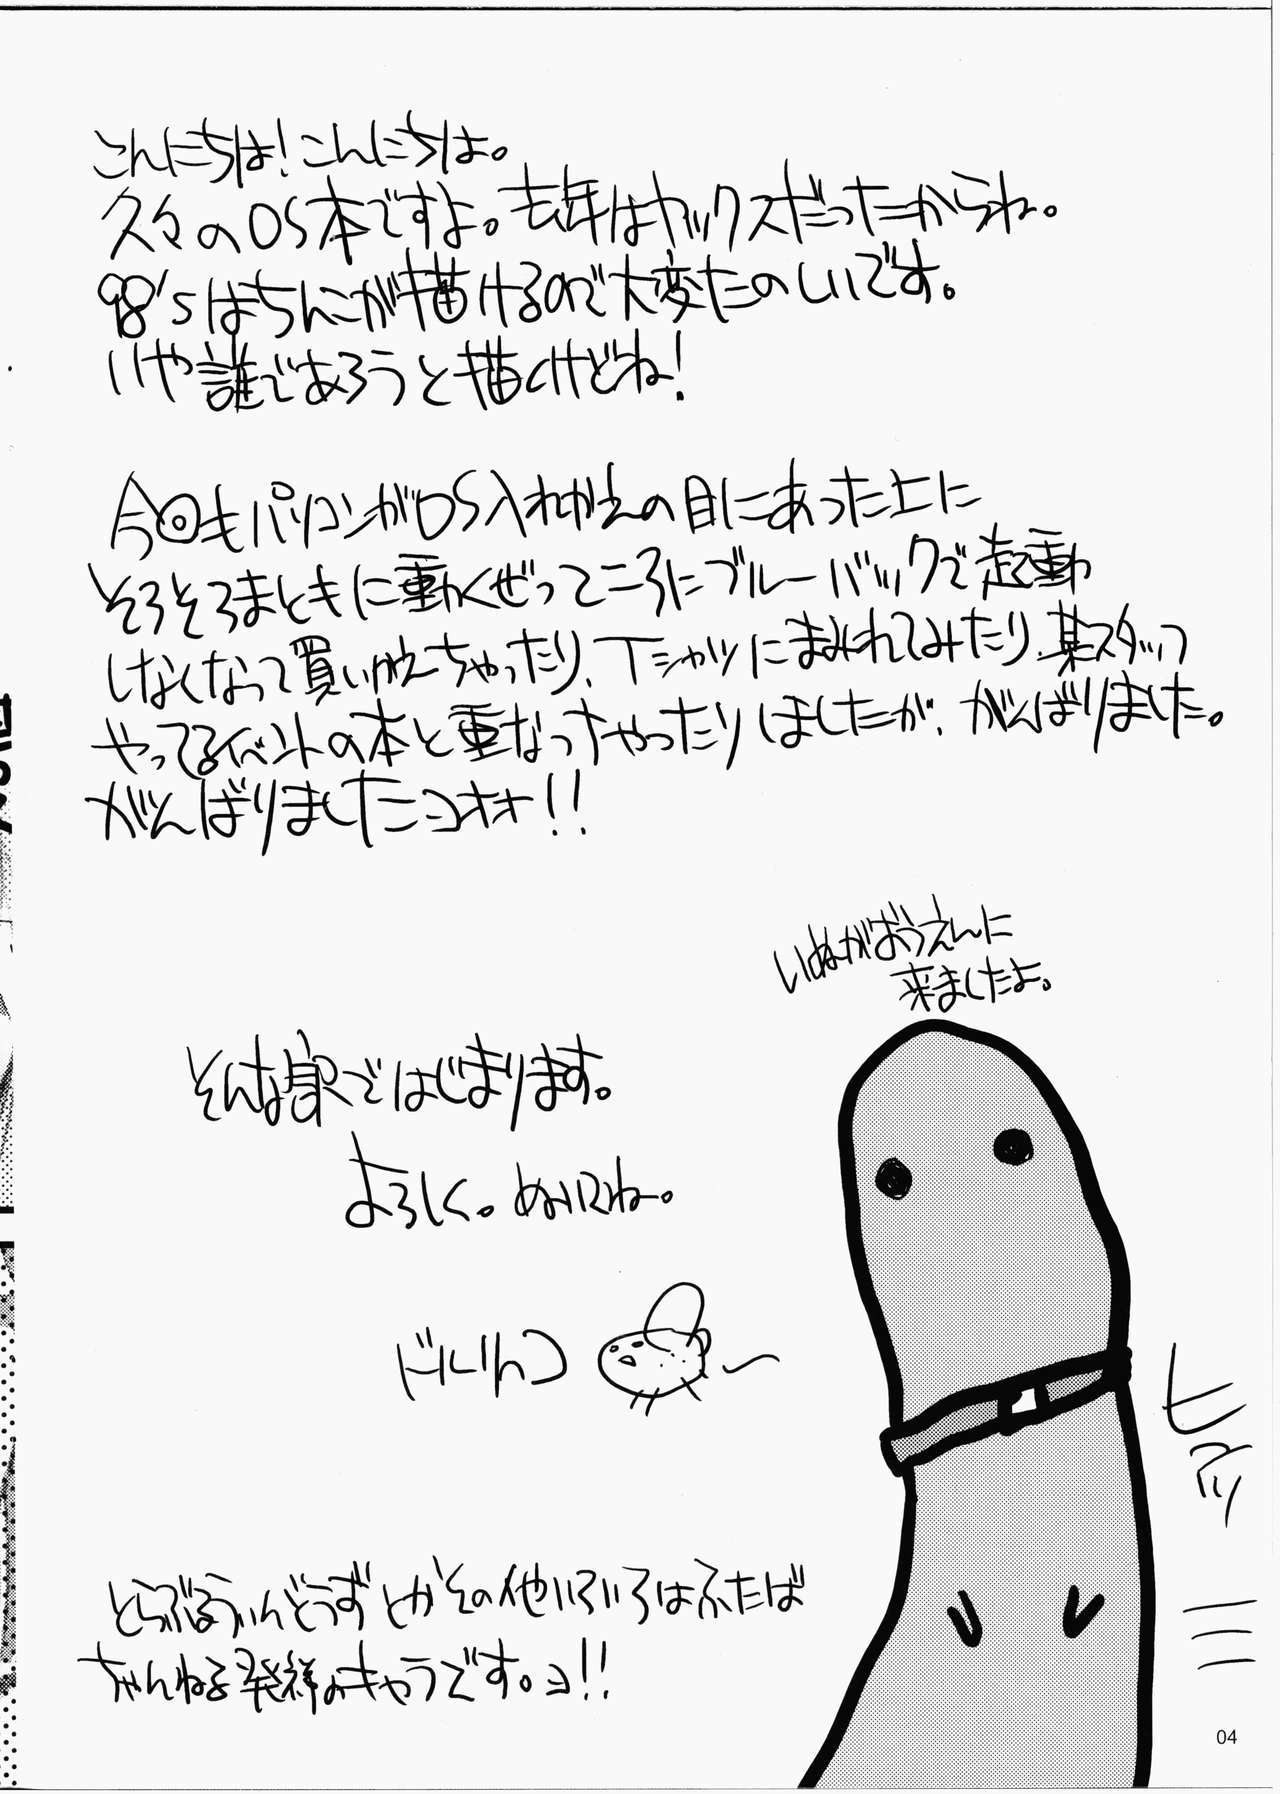 こんにちは!こんにちは。
久々のOS本ですよ。去年はヤックスだったからね。
98'sはちんこが描けるので大変たのしいです。
いや誰であろうと描くけどね!
今回もパソコンがOS入れかえの目にあった上に
そろそろまともに動くぜってころにブルーバックで起動
しなくなって買いかえちゃったり、Tシャツにまみれてみたり、某スタッフ
やってるイベントの本と重なっちゃったりしましたが、がんばりました。
がんばりましたニョオオ!!
いぬがおうえんに
来ましたよ。
そんな訳ではじまります。
よろしく。ね。
ドルリ
ヒアッ
とらぶるうぃんどうずとかその他いろいろはふたば
ちゃんねる発祥のキャラです。ヨ!!
04